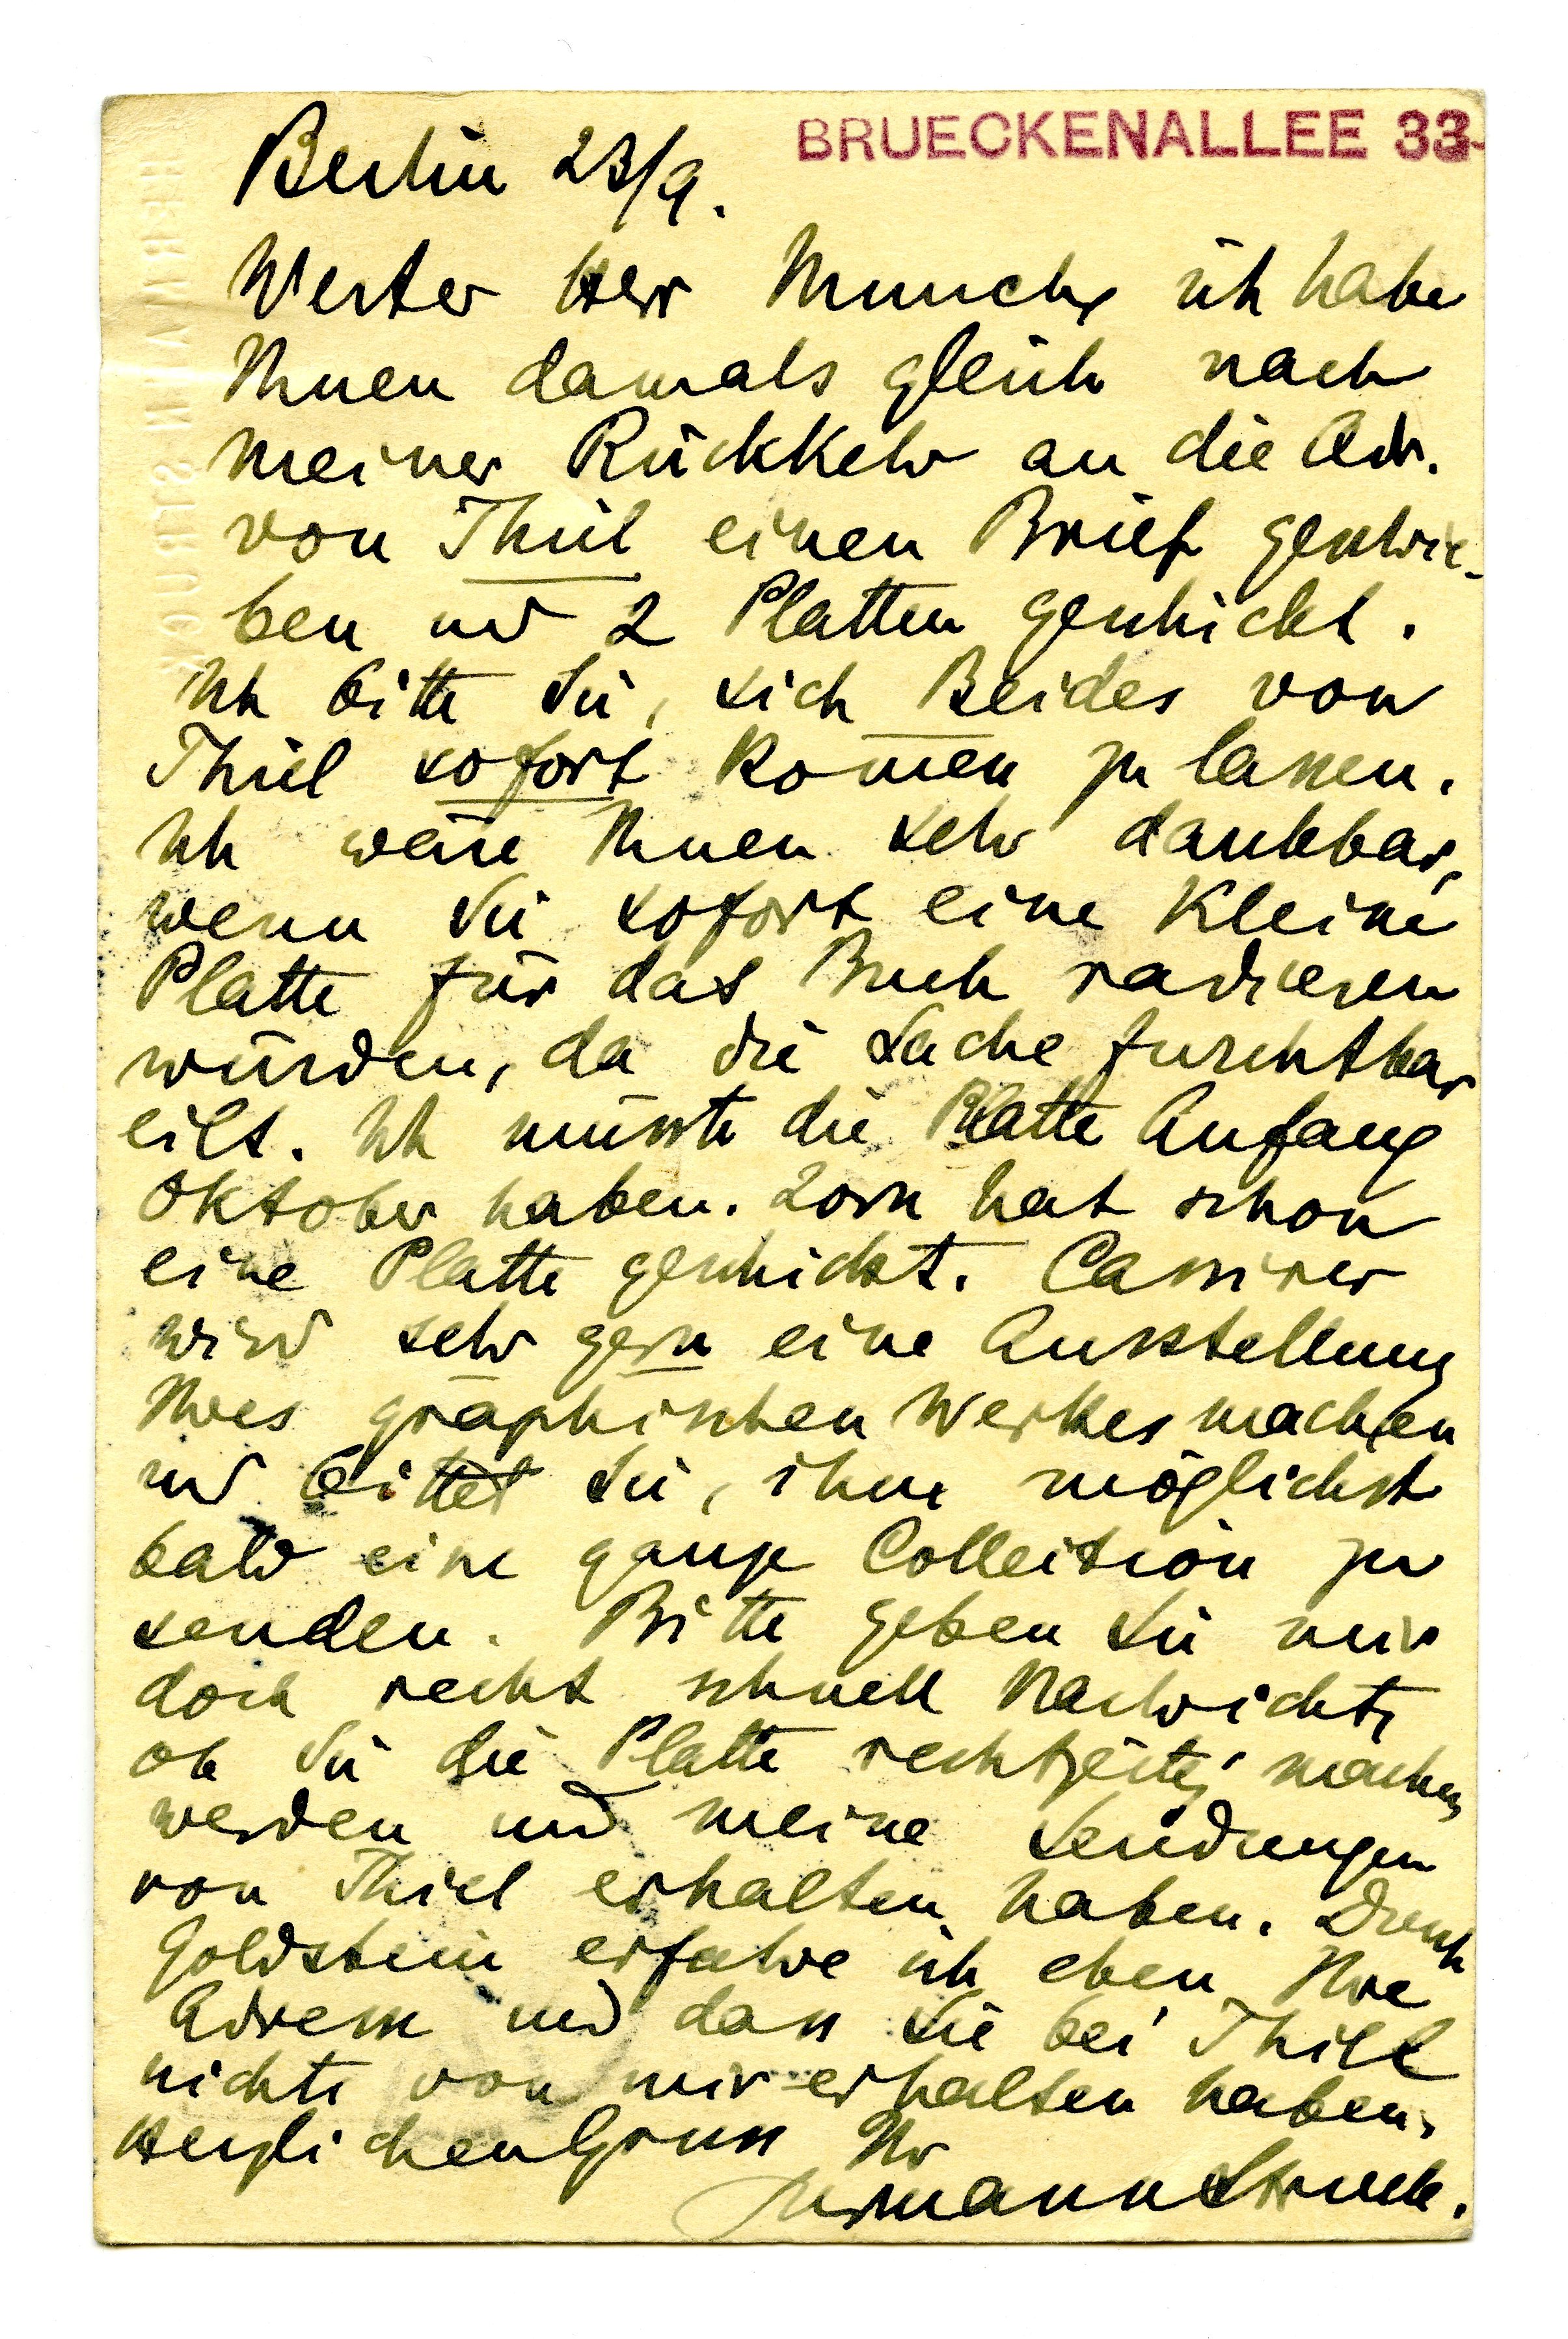 BRUECKENALLEE 33
Berlin 23/9.
Werter Herr Munch, ich habe
Ihnen damals gleich nach
meiner Rückkehr an die Adr.
von Thiel einen Brief geschrie-
ben und 2 Platten geschickt.
Ich bitte Sie, sich Beides von
Thiel sofort kom̅en zu lassen.
Ich wäre Ihnen sehr dankbar,
wenn Sie sofort eine kleine
Platte für das Buch radieren
würden, da die Sache furchtbar
eilt. Ich müsste die Platte Anfang
Oktober haben. Zorn hat schon
eine Platte geschickt. Cassirer
wird sehr gern eine Ausstellung
Ihres graphischen Werkes machen
und bittet Sie, ihm möglichst
bald eine ganze Collection zu
senden. Bitte geben Sie mir
doch recht schnell Nachricht,
ob Sie die Platte rechtzeitig machen
werden und meine Sendungen
von Thiel erhalten haben. Durch
Goldstein erfahre ich eben Ihre
Adresse und dass Sie bei Thiel
nichts von mir erhalten haben.
Herzlichen Gruss Ihr
Hermann Struck.
HERMANN STRUCK